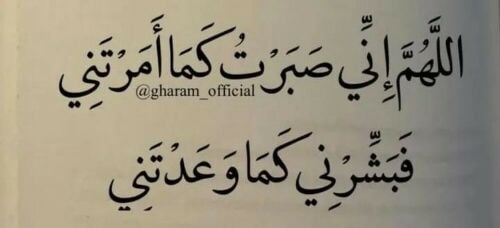 اللَّهُمَّ إِنِّي صَبَرْتُ كَمَا أَمَرْتَنِي
@gharam_official
فَبَشِّرْنِي كَمَا وَعَدْتَنِي